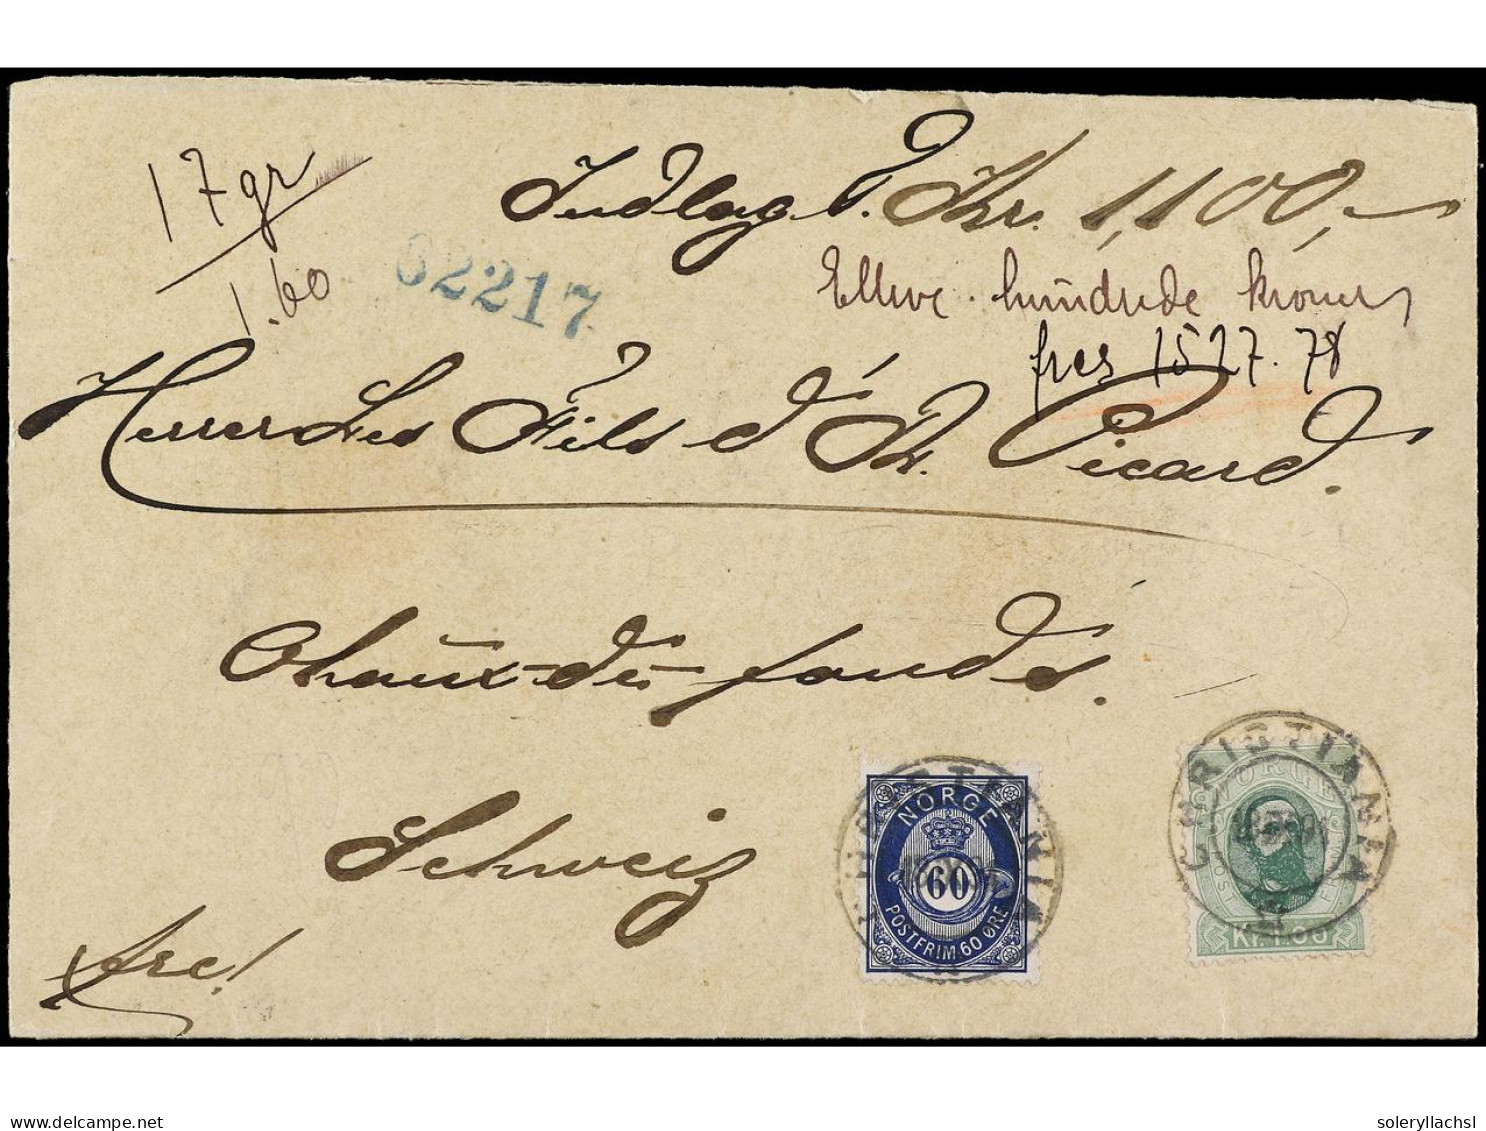 17 gr
1.60
Indlagt Kr. 1,100,-
62217
Elleve hundrede kroner
frcs 1527.78
Herrer Les Fils d' R. Picard.
Chaux-de-fonds.
Schweiz
frc!
NORGE
60
POSTFRIM. 60 ØRE
CHRISTIANIA
NORGE
CHRISTIANIA
Kr. 1.00
delcampe.net
soleryllachsl